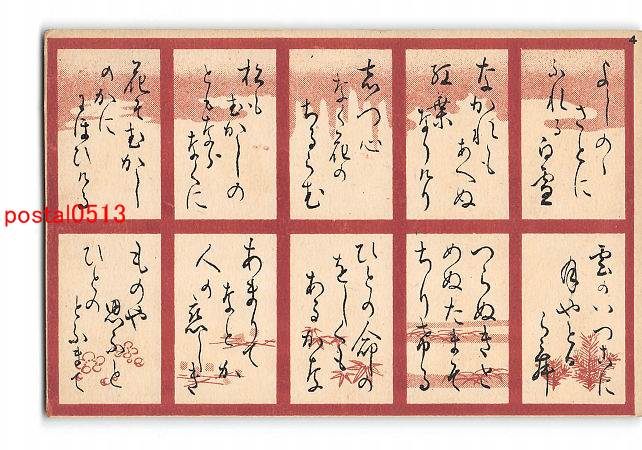 4
よしのゝ
さとに
ふれる
白雪
なかれも
あへぬ
紅葉
なりけり
志つ心
なく花の
ちるらむ
松も
むかしの
ともなら
なくに
花そむかし
のかに
にほひける
雲のいつこに
月やとる
らむ
つらぬきと
めぬたまそ
ちり希る
ひとの命の
をしくも
あるかな
あまりて
なとか
人の恋しき
ものや
思ふと
ひとの
とふまて
postal0513